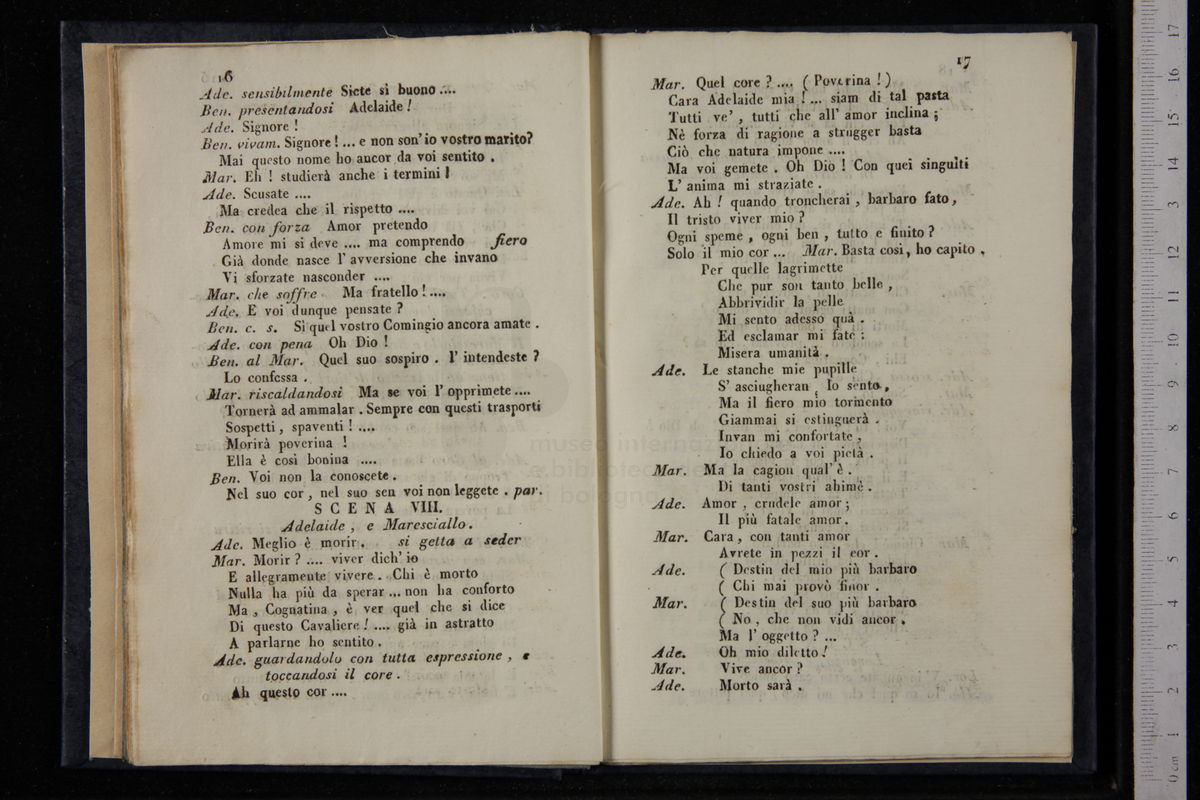 16
Ade. sensibilmente Siete sì buono ....
Ben. presentandosi Adelaide !
Ade. Signore !
Ben. vivam. Signore ! ... e non son' io vostro marito?
Mai questo nome ho ancor da voi sentito .
Mar. Eh ! studierà anche i termini !
Ade. Scusate ....
Ma credea che il rispetto ....
Ben. con forza Amor pretendo
Amore mi si deve .... ma comprendo fiero
Già donde nasce l' avversione che invano
Vi sforzate nasconder ....
Mar. che soffre Ma fratello ! ....
Ade. E voi dunque pensate ?
Ben. c. s. Si quel vostro Comingio ancora amate .
Ade. con pena Oh Dio !
Ben. al Mar. Quel suo sospiro . l' intendeste ?
Lo confessa .
Mar. riscaldandosi Ma se voi l' opprimete ....
Tornerà ad ammalar . Sempre con questi trasporti
Sospetti , spaventi ! ....
Morirà poverina !
Ella è così bonina ....
Ben. Voi non la conoscete .
Nel suo cor , nel suo sen voi non leggete . par.
SCENA VIII.
Adelaide , e Maresciallo .
Ade. Meglio è morir . si getta a seder
Mar. Morir ? .... viver dich' io
E allegramente vivere . Chi è morto
Nulla ha più da sperar ... non ha conforto
Ma , Cognatina , è ver quel che si dice
Di questo Cavaliere ! .... già in astratto
A parlarne ho sentito .
Ade. guardandolo con tutta espressione , e
toccandosi il core .
Ah questo cor ....
17
Mar. Quel core ? .... ( Poverina ! )
Cara Adelaide mia ! ... siam di tal pasta
Tutti ve' , tutti che all' amor inclina ;
Nè forza di ragione a strugger basta
Ciò che natura impone ....
Ma voi gemete . Oh Dio ! Con quei singulti
L' anima mi straziate .
Ade. Ah ! quando troncherai , barbaro fato ,
Il tristo viver mio ?
Ogni speme , ogni ben , tutto e finito ?
Solo il mio cor ... Mar. Basta così , ho capito .
Per quelle lagrimette
Che pur son tanto belle ,
Abbrividir la pelle
Mi sento adesso quà .
Ed esclamar mi fate :
Misera umanità .
Ade. Le stanche mie pupille
S' asciugheran , Io sento ,
Ma il fiero mio tormento
Giammai si estinguerà .
Invan mi confortate ,
Io chiedo a voi pietà .
Mar. Ma la cagion qual' è .
Di tanti vostri ahimè .
Ade. Amor , crudele amor ;
Il più fatale amor .
Mar. Cara , con tanti amor
Avrete in pezzi il cor .
Ade. ( Destin del mio più barbaro
( Chi mai provò finor .
Mar. ( Destin del suo più barbaro
( No , che non vidi ancor .
Ma l' oggetto ? ...
Ade. Oh mio diletto !
Mar. Vive ancor ?
Ade. Morto sarà .